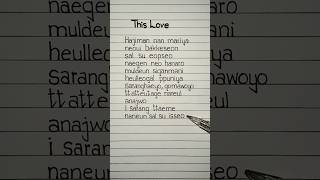 This Love
Hajiman nan mariya
neoui bakkeseon
sal su eopseo
naegen neo hanaro
muldeun siganmani
heulleogal ppuniya
saranghaeyo, gomawoyo
ttatteutage nareul
anajwo
i sarang ttaeme
naneun sal su isseo
anajwo
i saran
naneun